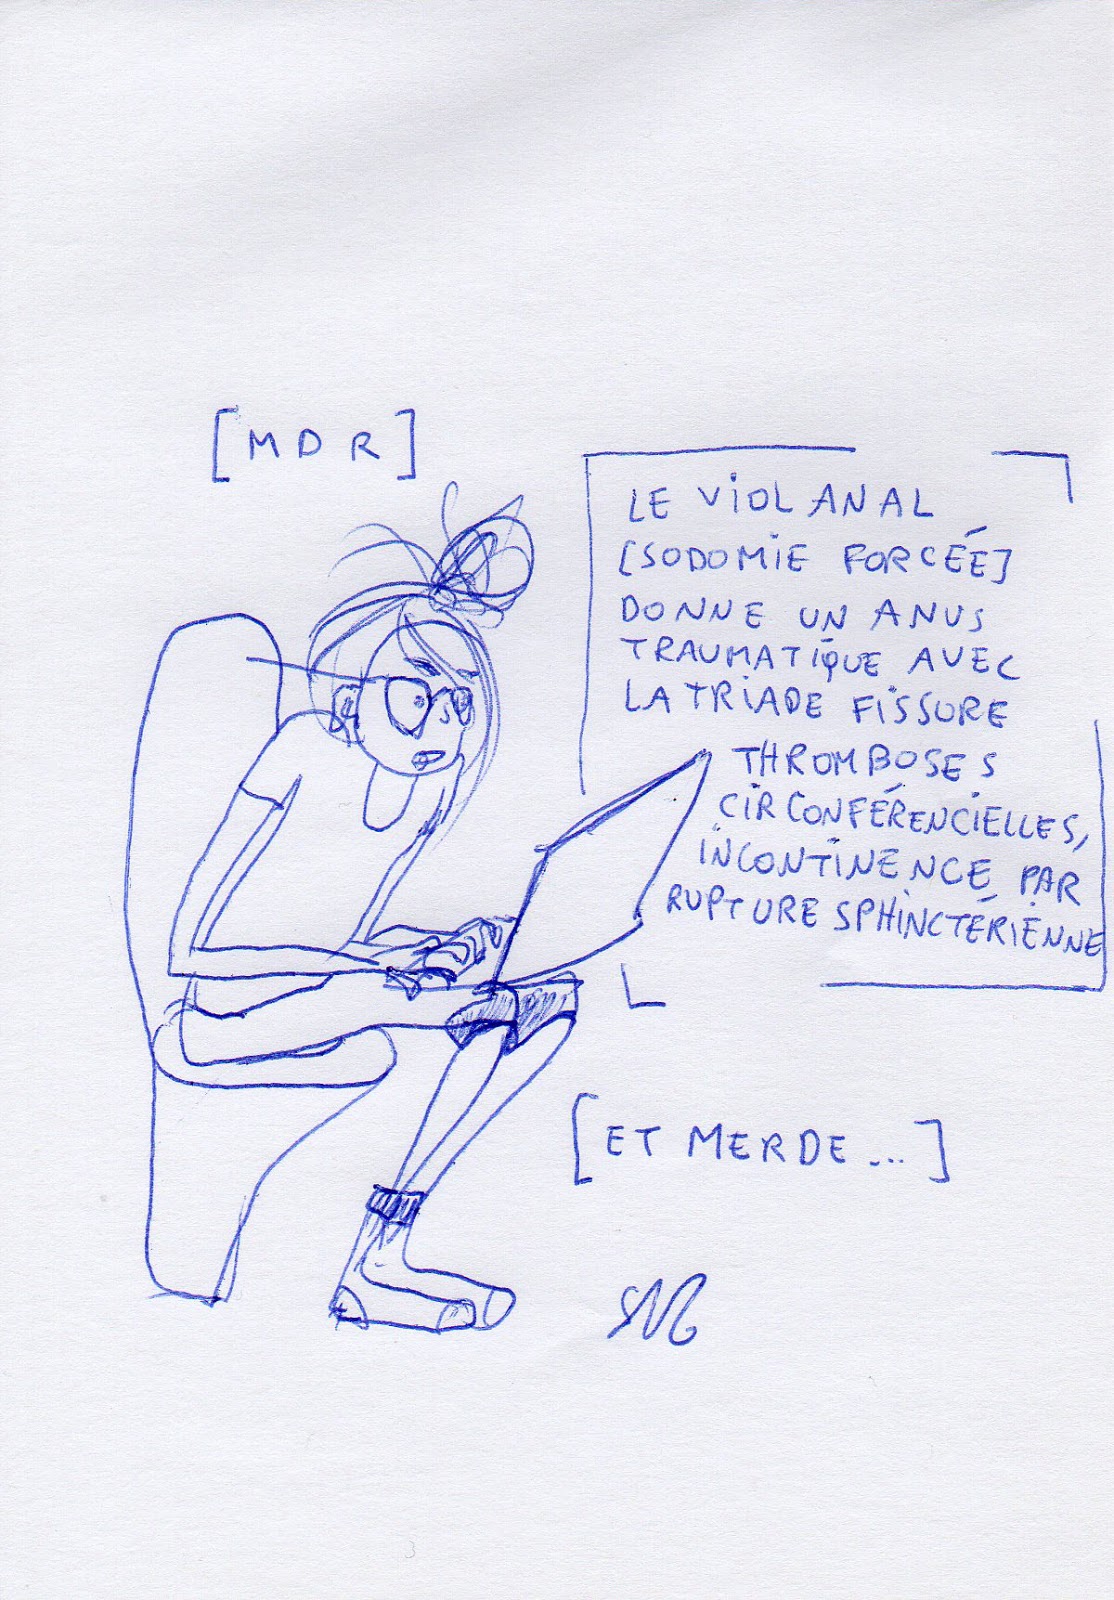 [MDR]
LE VIOL ANAL
[SODOMIE FORCÉE]
DONNE UN ANUS
TRAUMATIQUE AVEC
LA TRIADE FISSURE
THROMBOSES
CIRCONFÉRENCIELLES,
INCONTINENCE PAR
RUPTURE SPHINCTÉRIENNE
[ET MERDE...]